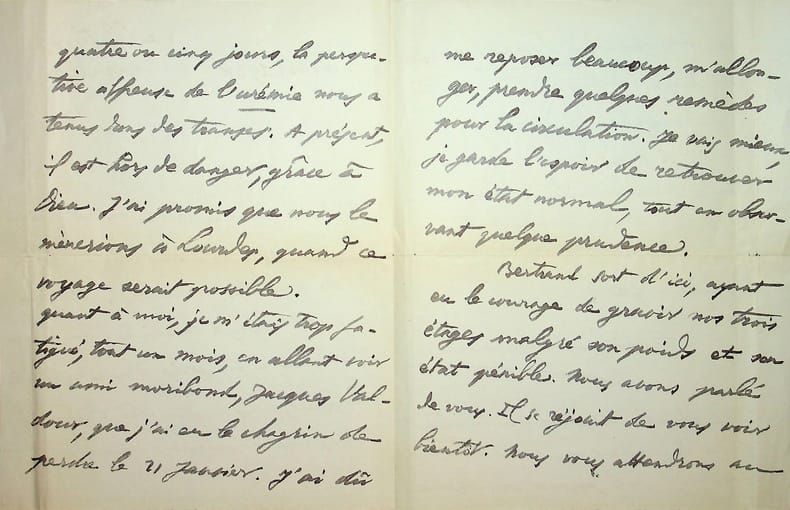 quatre ou cinq jours, la perspec-
tive affreuse de l'urémie nous a
tenus dans des transes. A présent,
il est hors de danger, grâce à
Dieu. J'ai promis que nous le
mènerions à Lourdes, quand ce
voyage serait possible.
quant à moi, je m'étais trop fa-
tigué, tout un mois, en allant voir
un ami moribond, Jacques Val-
dour, que j'ai eu le chagrin de
perdre le 21 janvier. J'ai dû
me reposer beaucoup, m'allon-
ger, prendre quelques remèdes
pour la circulation. Je vais mieux,
je garde l'espoir de retrouver
mon état normal, tout en obser-
vant quelque prudence.
Bertrand sort d'ici, ayant
eu le courage de gravir nos trois
étages malgré son poids et son
état pénible. Nous avons parlé
de vous. Il se réjouit de vous voir
bientôt. Nous vous attendrons au